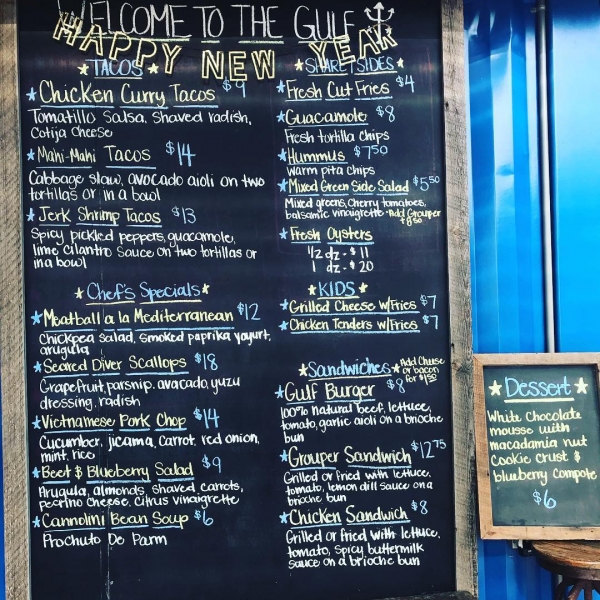 WELCOME TO THE GULF
HAPPY NEW YEAR
TACOS
Chicken Curry Tacos $9
Tomatillo Salsa, shaved radish,
Cotija cheese
Mahi-Mahi Tacos $14
Cabbage slaw, avocado aioli on two
tortillas or in a bowl
Jerk Shrimp Tacos $13
Spicy pickled peppers, guacamole,
lime cilantro sauce on two tortillas or
in a bowl
Chef's Specials
Meatball a la Mediterranean $12
Chickpea salad, smoked paprika yogurt,
arugula
Seared Diver Scallops $18
Grapefruit, parsnip, avocado, yuzu
dressing, radish
Vietnamese Pork Chop $14
Cucumber, jicama, carrot, red onion,
mint, rice
Beet & Blueberry Salad $9
Arugula, almonds, shaved carrots,
pecorino cheese, citrus vinaigrette
Cannolini Bean Soup $6
Prochuto De Parm
SHARE/SIDES
Fresh Cut Fries $4
Guacamole $8
Fresh tortilla chips
Hummus $7.50
Warm pita chips
Mixed Green Side Salad $5.50
Mixed greens, Cherry tomatoes,
balsamic vinaigrette - Add Grouper
+8.50
Fresh Oysters
1/2 dz - $11
1 dz - $20
KIDS
Grilled Cheese w/Fries $7
Chicken Tenders w/Fries $7
Sandwiches
Add Cheese
or bacon
for $1.50
Gulf Burger $8
100% natural beef, lettuce,
tomato, garlic aioli on a brioche
bun
Grouper Sandwich $12.75
Grilled or fried with lettuce,
tomato, lemon dill sauce on a
brioche bun
Chicken Sandwich $8
Grilled or fried with lettuce,
tomato, spicy buttermilk
sauce on a brioche bun
Dessert
White Chocolate
mousse with
macadamia nut
cookie crust &
blueberry compote
$6